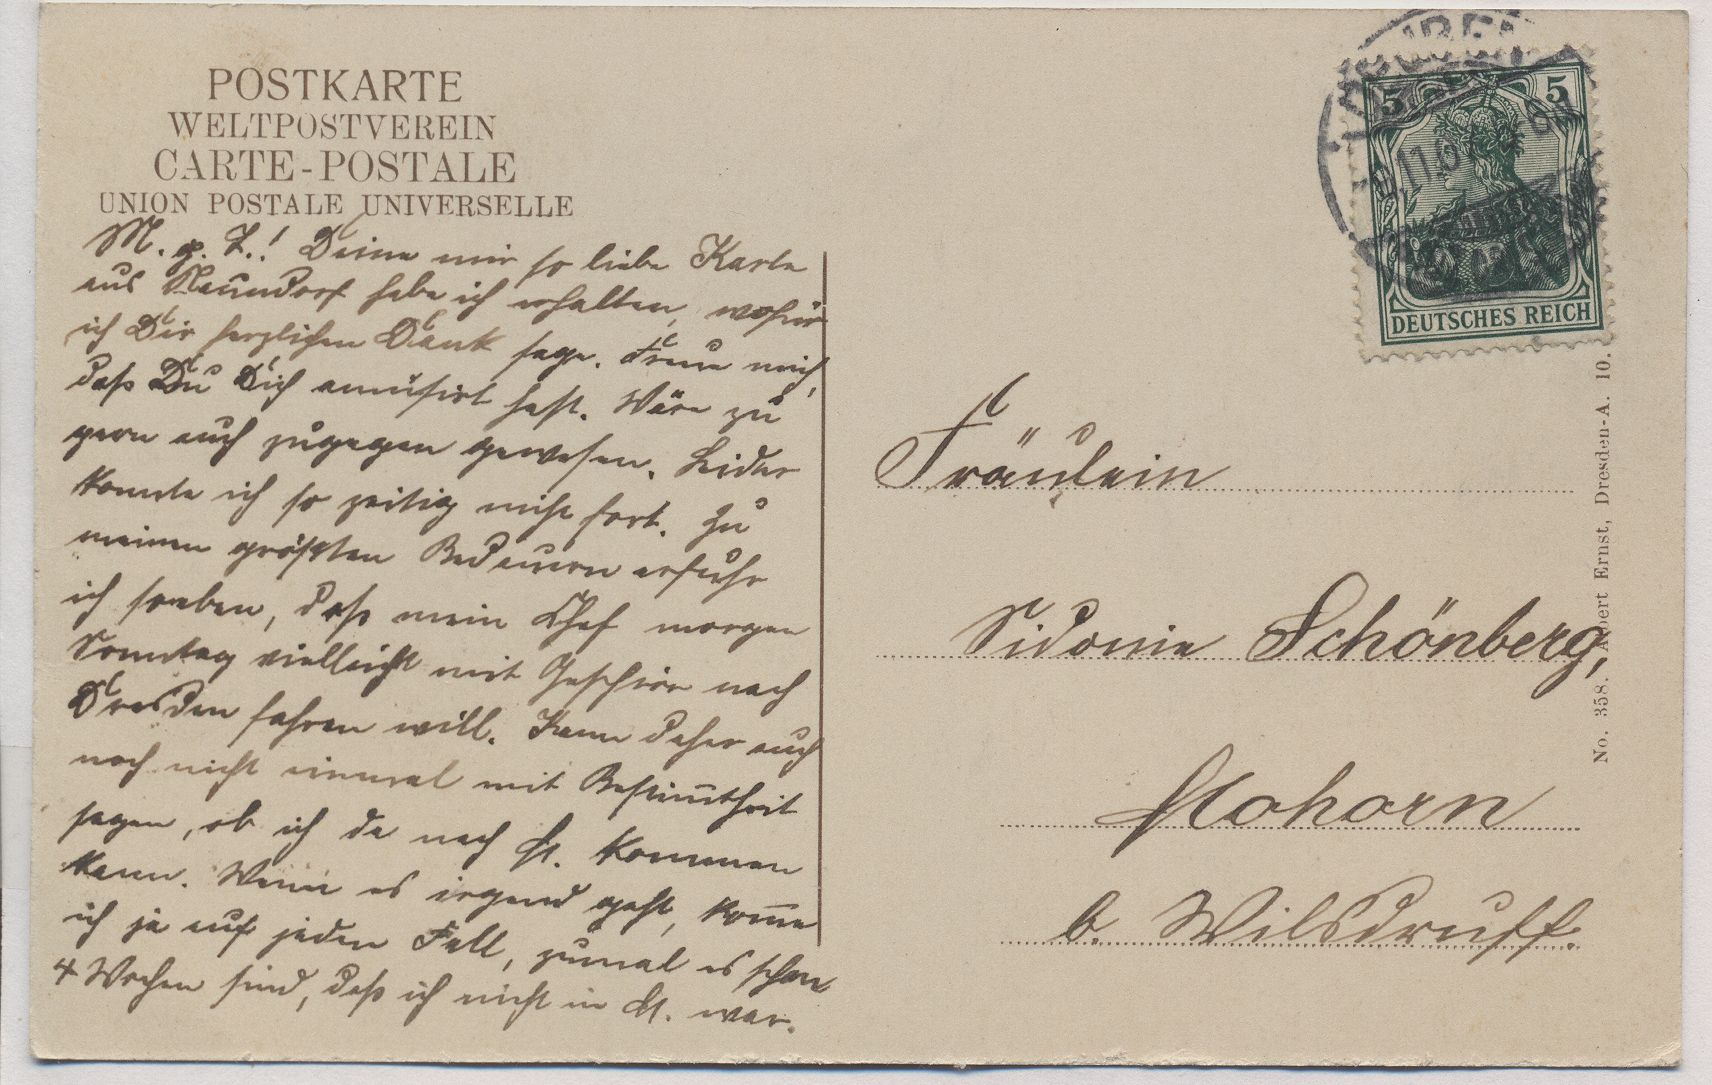 POSTKARTE
WELTPOSTVEREIN
CARTE-POSTALE
UNION POSTALE UNIVERSELLE
M. g. L.! Deine mir so liebe Karte
aus Naundorf habe ich erhalten, wofür
ich Dir herzlichen Dank sage. Freue mich,
daß Du Dich amüsirt hast. Wäre zu
gern auch zugegen gewesen. Leider
konnte ich so zeitig nicht fort. Zu
meinen größten Bedauern erfuhr
ich soeben, daß mein Chef morgen
Sonntag vielleicht mit Geschirr nach
Dresden fahren will. Kann daher auch
noch nicht einmal mit Bestimtheit
sagen, ob ich da nach M. kommen
kann. Wenn es irgend geht, kom̅e
ich ja auf jeden Fall, zumal es schon
4 Wochen sind, daß ich nicht in M. war.
5 5
DEUTSCHES REICH
Fräulein
Sidonie Schönberg,
Mohorn
b. Wilsdruff.
No. 358. Albert Ernst, Dresden-A. 10.